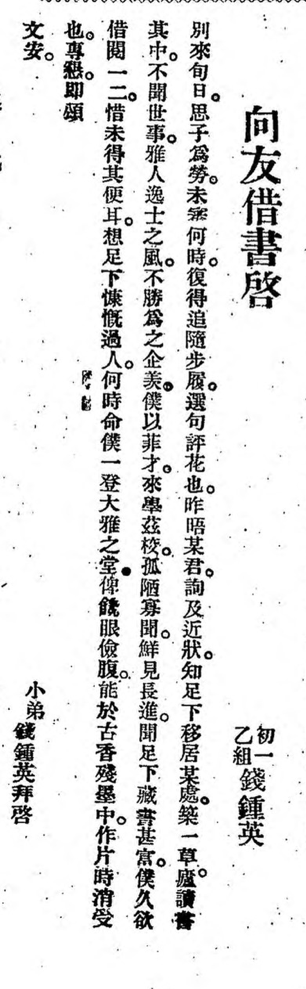 向友借書啓
初一乙組 錢鍾英
別來旬日。思子爲勞。未審何時。復得追隨步履。選句評花也。昨晤某君。詢及近狀。知足下移居某處。築一草廬。讀書
其中。不聞世事。雅人逸士之風。不勝爲之企羡。僕以菲才。來學茲校。孤陋寡聞。鮮見長進。聞足下藏書甚富。僕久欲
借閱一二。惜未得其便耳。想足下慷慨過人。何時命僕一登大雅之堂。俾饞眼儉腹。能於古香殘墨中。作片時消受
也。專懇。卽頌
文安。
小弟
錢鍾英拜啓